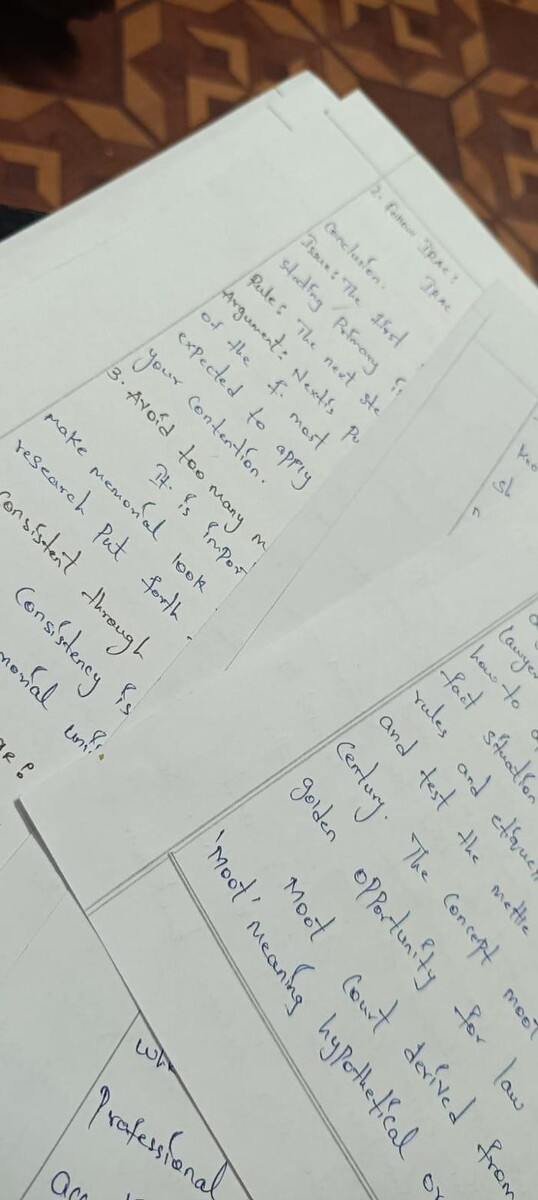 2. Follow IRAC:
IRAC
Conclusion.
Issue: The first
stating / Primary
Rule: The next ste
Argument: Next is Pu
of the I. most
expected to apply
your contention.
3. Avoid too many m
It is impor
make memorial look
research Put forth
Consistent through
Consistency is
morial uni
lawyer
how to
fact situation
rules and etiquett
and test the mettle
century. The concept moot
golden opportunity for law
Moot Court derived from
'Moot' meaning hypothetical or
Professional